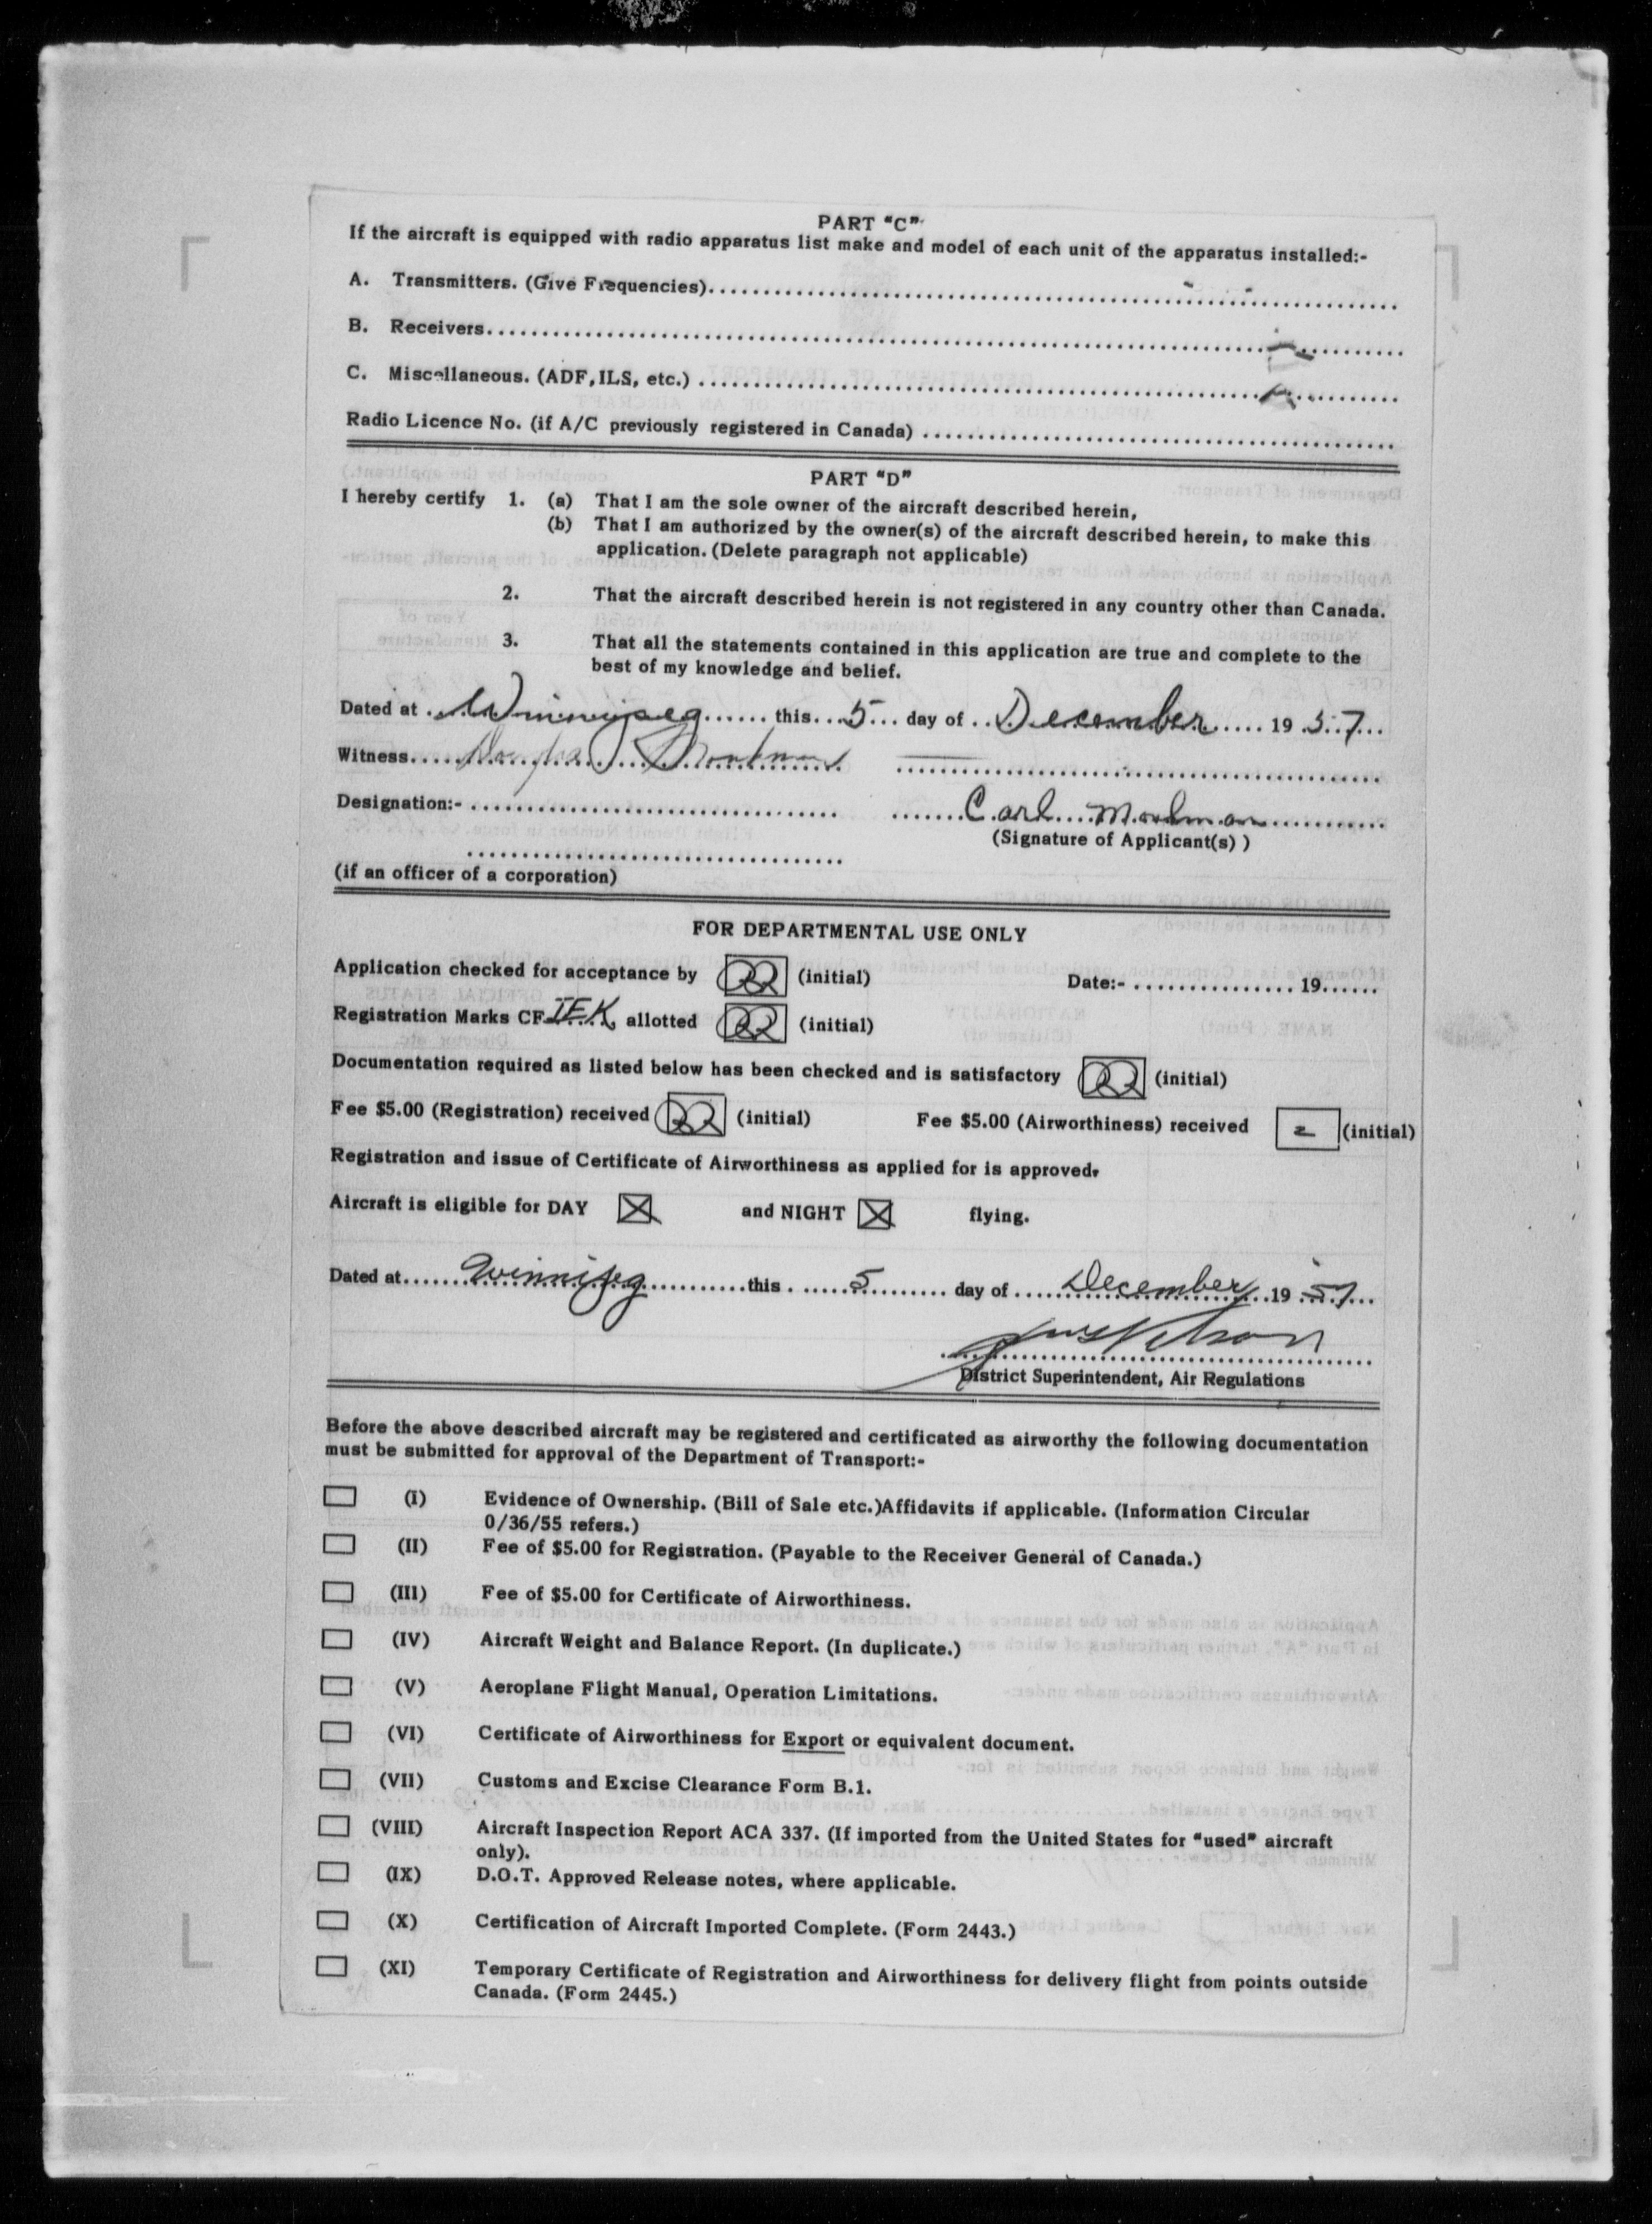 PART "C"
If the aircraft is equipped with radio apparatus list make and model of each unit of the apparatus installed:-
A. Transmitters. (Give Frequencies)
B. Receivers
C. Miscellaneous. (ADF, ILS, etc.)
Radio Licence No. (if A/C previously registered in Canada)
PART "D"
I hereby certify 1. (a) That I am the sole owner of the aircraft described herein,
(b) That I am authorized by the owner(s) of the aircraft described herein, to make this
application. (Delete paragraph not applicable)
2. That the aircraft described herein is not registered in any country other than Canada.
3. That all the statements contained in this application are true and complete to the
best of my knowledge and belief.
Dated at Winnipeg this 5 day of December 19 57
Witness
Designation:- Carl
(Signature of Applicant(s) )
(if an officer of a corporation)
FOR DEPARTMENTAL USE ONLY
Application checked for acceptance by (initial) Date:- 19
Registration Marks CF IEK, allotted (initial)
Documentation required as listed below has been checked and is satisfactory (initial)
Fee $5.00 (Registration) received (initial) Fee $5.00 (Airworthiness) received (initial)
Registration and issue of Certificate of Airworthiness as applied for is approved.
Aircraft is eligible for DAY X and NIGHT X flying.
Dated at Winnipeg this 5 day of December 19 57
District Superintendent, Air Regulations
Before the above described aircraft may be registered and certificated as airworthy the following documentation
must be submitted for approval of the Department of Transport:-
(I) Evidence of Ownership. (Bill of Sale etc.)Affidavits if applicable. (Information Circular
0/36/55 refers.)
(II) Fee of $5.00 for Registration. (Payable to the Receiver General of Canada.)
(III) Fee of $5.00 for Certificate of Airworthiness.
(IV) Aircraft Weight and Balance Report. (In duplicate.)
(V) Aeroplane Flight Manual, Operation Limitations.
(VI) Certificate of Airworthiness for Export or equivalent document.
(VII) Customs and Excise Clearance Form B.1.
(VIII) Aircraft Inspection Report ACA 337. (If imported from the United States for "used" aircraft
only).
(IX) D.O.T. Approved Release notes, where applicable.
(X) Certification of Aircraft Imported Complete. (Form 2443.)
(XI) Temporary Certificate of Registration and Airworthiness for delivery flight from points outside
Canada. (Form 2445.)